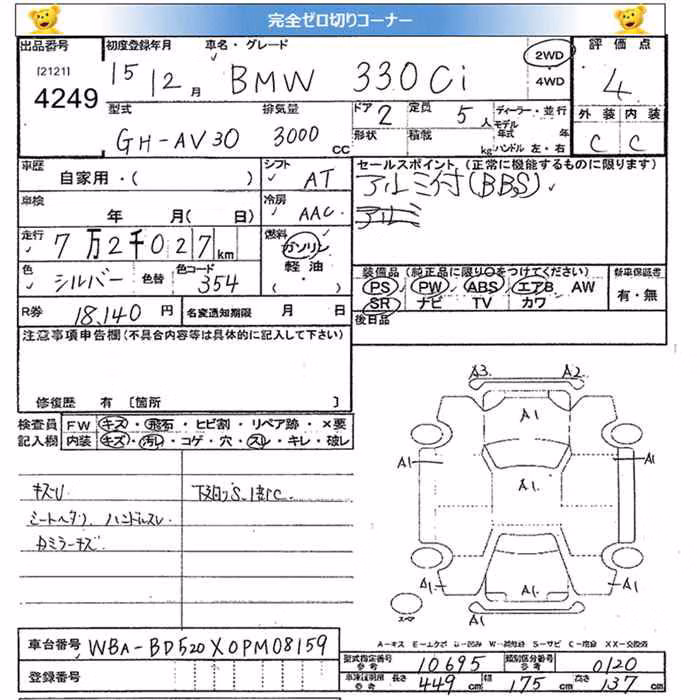 完全ゼロ切りコーナー
出品番号 初度登録年月 車名・グレード 2WD 4WD 評価点
[2121] 4249 15 12月 BMW 330Ci 4
型式 排気量 ドア 2 定員 5人 ディーラー・並行 外装 内装
GH-AV30 3000cc 形状 積載 kg モデル年式 年 ハンドル 左・右 C C
車歴 自家用・( ) シフト AT セールスポイント (正常に機能するものに限ります)
アルミ付(BBS)
車検 年 月( 日) 冷房 AAC
走行 7万2千027km 燃料 ガソリン 軽油 ( ・ )
色 シルバー 色替 色コード 354 装備品 (純正品に限り○をつけてください) 新車保証書
PS・PW・ABS・エアB・AW 有・無
SR・ナビ・TV・カワ
R券 18,140円 名変通知期限 月 日 後日品
注意事項申告欄(不具合内容等は具体的に記入して下さい)
修復歴 有 [箇所 ]
検査員記入欄 FW キズ・飛石・ヒビ割・リペア跡・×要
内装 キズ・汚レ・コゲ・穴・スレ・キレ・破レ
キズU
シートヘタリ ハンドルスレ
A3 A2
A1
A1 A1
A1
A1 A1 A1
A1
スペア
A-キズ E-エクボ U-凹み W-補修跡 S-サビ C-腐蝕 XX-交換済
車台番号 WBA-BD520X0PM08159
型式指定番号 参考 10695 類別区分番号 参考 0120
登録番号 車検証明用 参考 長さ 449cm 幅 175cm 高さ 137cm